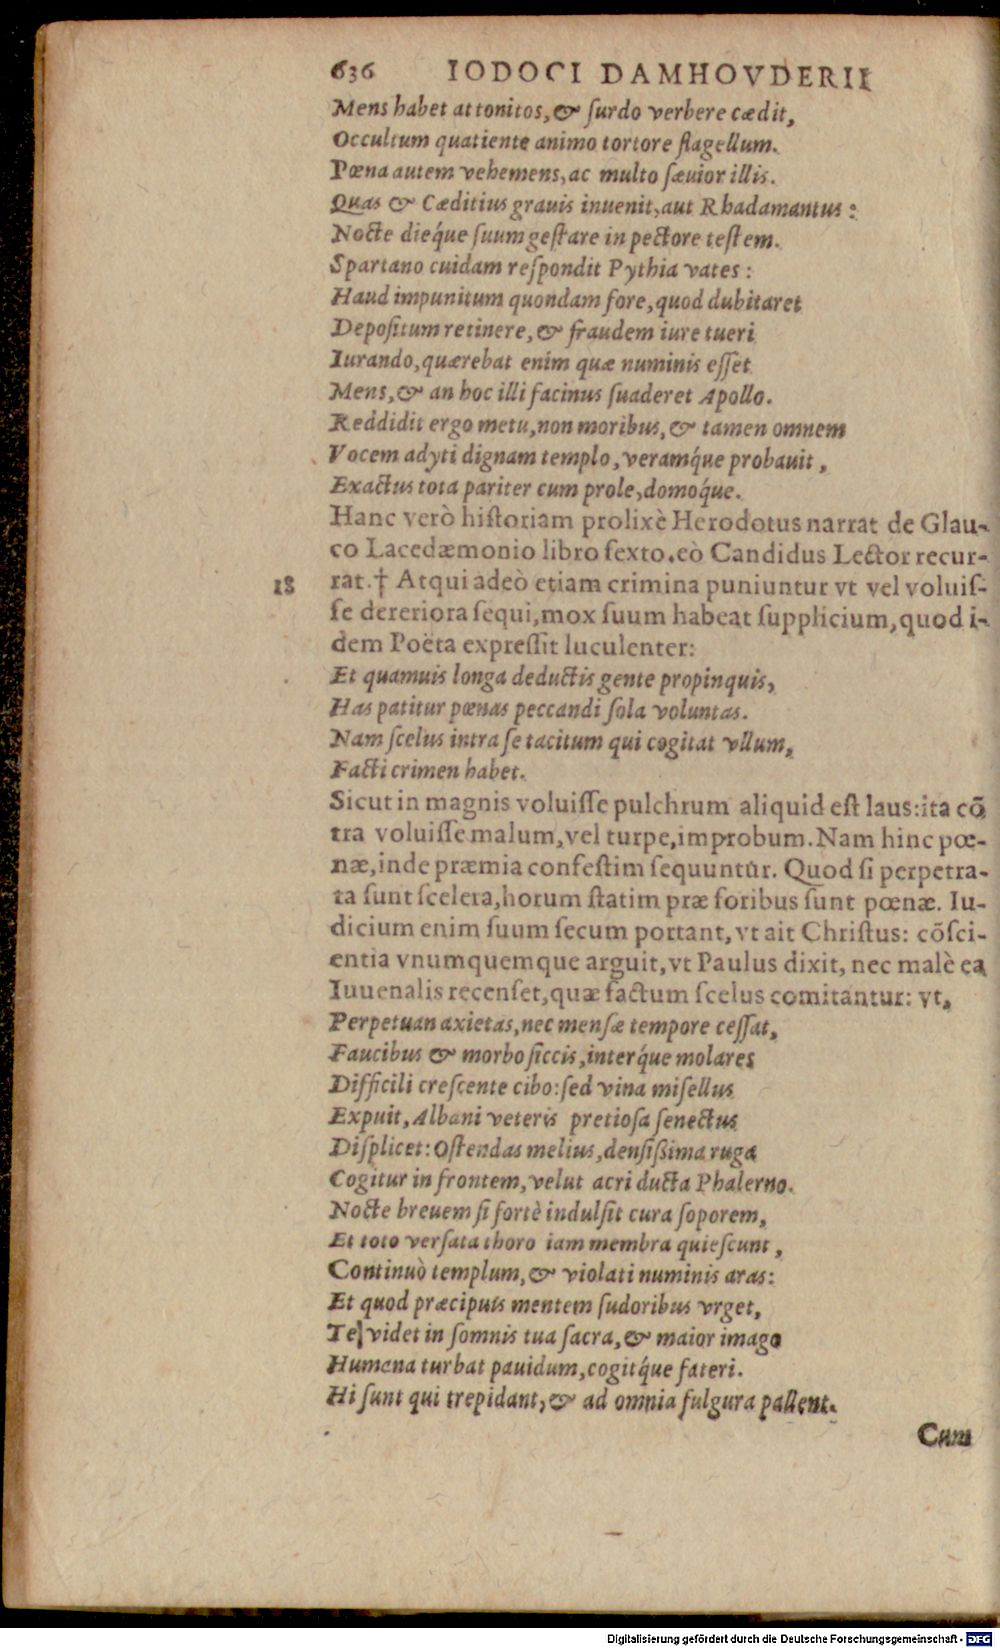 636 IODOCI DAMHOVDERII
Mens habet attonitos, & ſurdo verbere cædit,
Occultum quatiente animo tortore flagellum.
Pœna autem vehemens, ac multo ſæuior illis.
Quas & Cæditius grauis inuenit, aut Rhadamantus:
Nocte dieq́ue ſuum geſtare in pectore teſtem.
Spartano cuidam reſpondit Pythia vates:
Haud impunitum quondam fore, quod dubitaret
Depoſitum retinere, & fraudem iure tueri
Iurando, quærebat enim quæ numinis eſſet
Mens, & an hoc illi facinus ſuaderet Apollo.
Reddidit ergo metu, non moribus, & tamen omnem
Vocem adyti dignam templo, veramq́ue probauit,
Exactus tota pariter cum prole, domoq́ue.
Hanc verò hiſtoriam prolixè Herodotus narrat de Glau-
co Lacedæmonio libro ſexto. eò Candidus Lector recur-
18 rat. † Atqui adeò etiam crimina puniuntur vt vel voluiſ-
ſe dereriora ſequi, mox ſuum habeat ſupplicium, quod i-
dem Poëta expreſſit luculenter:
Et quamuis longa deductis gente propinquis,
Has patitur pœnas peccandi ſola voluntas.
Nam ſcelus intra ſe tacitum qui cogitat vllum,
Facti crimen habet.
Sicut in magnis voluiſſe pulchrum aliquid eſt laus: ita cõ
tra voluiſſe malum, vel turpe, improbum. Nam hinc pœ-
næ, inde præmia confeſtim ſequuntur. Quod ſi perpetra-
ta ſunt ſcelera, horum ſtatim præ foribus ſunt pœnæ. Iu-
dicium enim ſuum ſecum portant, vt ait Chriſtus: cõſci-
entia vnumquemque arguit, vt Paulus dixit, nec malè ea
Iuuenalis recenſet, quæ factum ſcelus comitantur: vt,
Perpetuan axietas, nec menſæ tempore ceſſat,
Faucibus & morbo ſiccis, interq́ue molares
Difficili creſcente cibo: ſed vina miſellus
Expuit, Albani veteris pretioſa ſenectus
Diſplicet: Oſtendas melius, denſißima ruga
Cogitur in frontem, velut acri ducta Phalerno.
Nocte breuem ſi fortè indulſit cura ſoporem,
Et toto verſata thoro iam membra quieſcunt,
Continuò templum, & violati numinis aras:
Et quod præcipuis mentem ſudoribus vrget,
Te videt in ſomnis tua ſacra, & maior imago
Humana turbat pauidum, cogitq́ue fateri.
Hi ſunt qui trepidant, & ad omnia fulgura pallent.
Cum
Digitalisierung gefördert durch die Deutsche Forschungsgemeinschaft - DFG